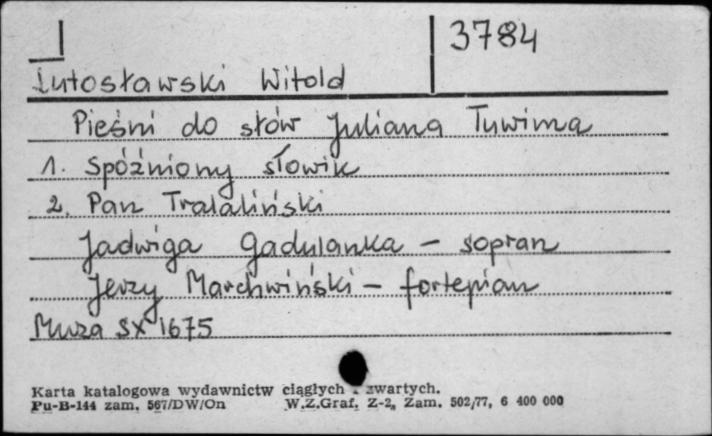 3784
Lutosławski Witold
Pieśni do słów Juliana Tuwima
1. Spóźniony słowik
2. Pan Tralaliński
Jadwiga Gadulanka – sopran
Jerzy Marchwiński – fortepian
Muza SX 1675
Karta katalogowa wydawnictw ciągłych i zwartych.
Pu-B-144 zam. 567/DW/On W.Z.Graf. Z-2, Zam. 502/77, 6 400 000